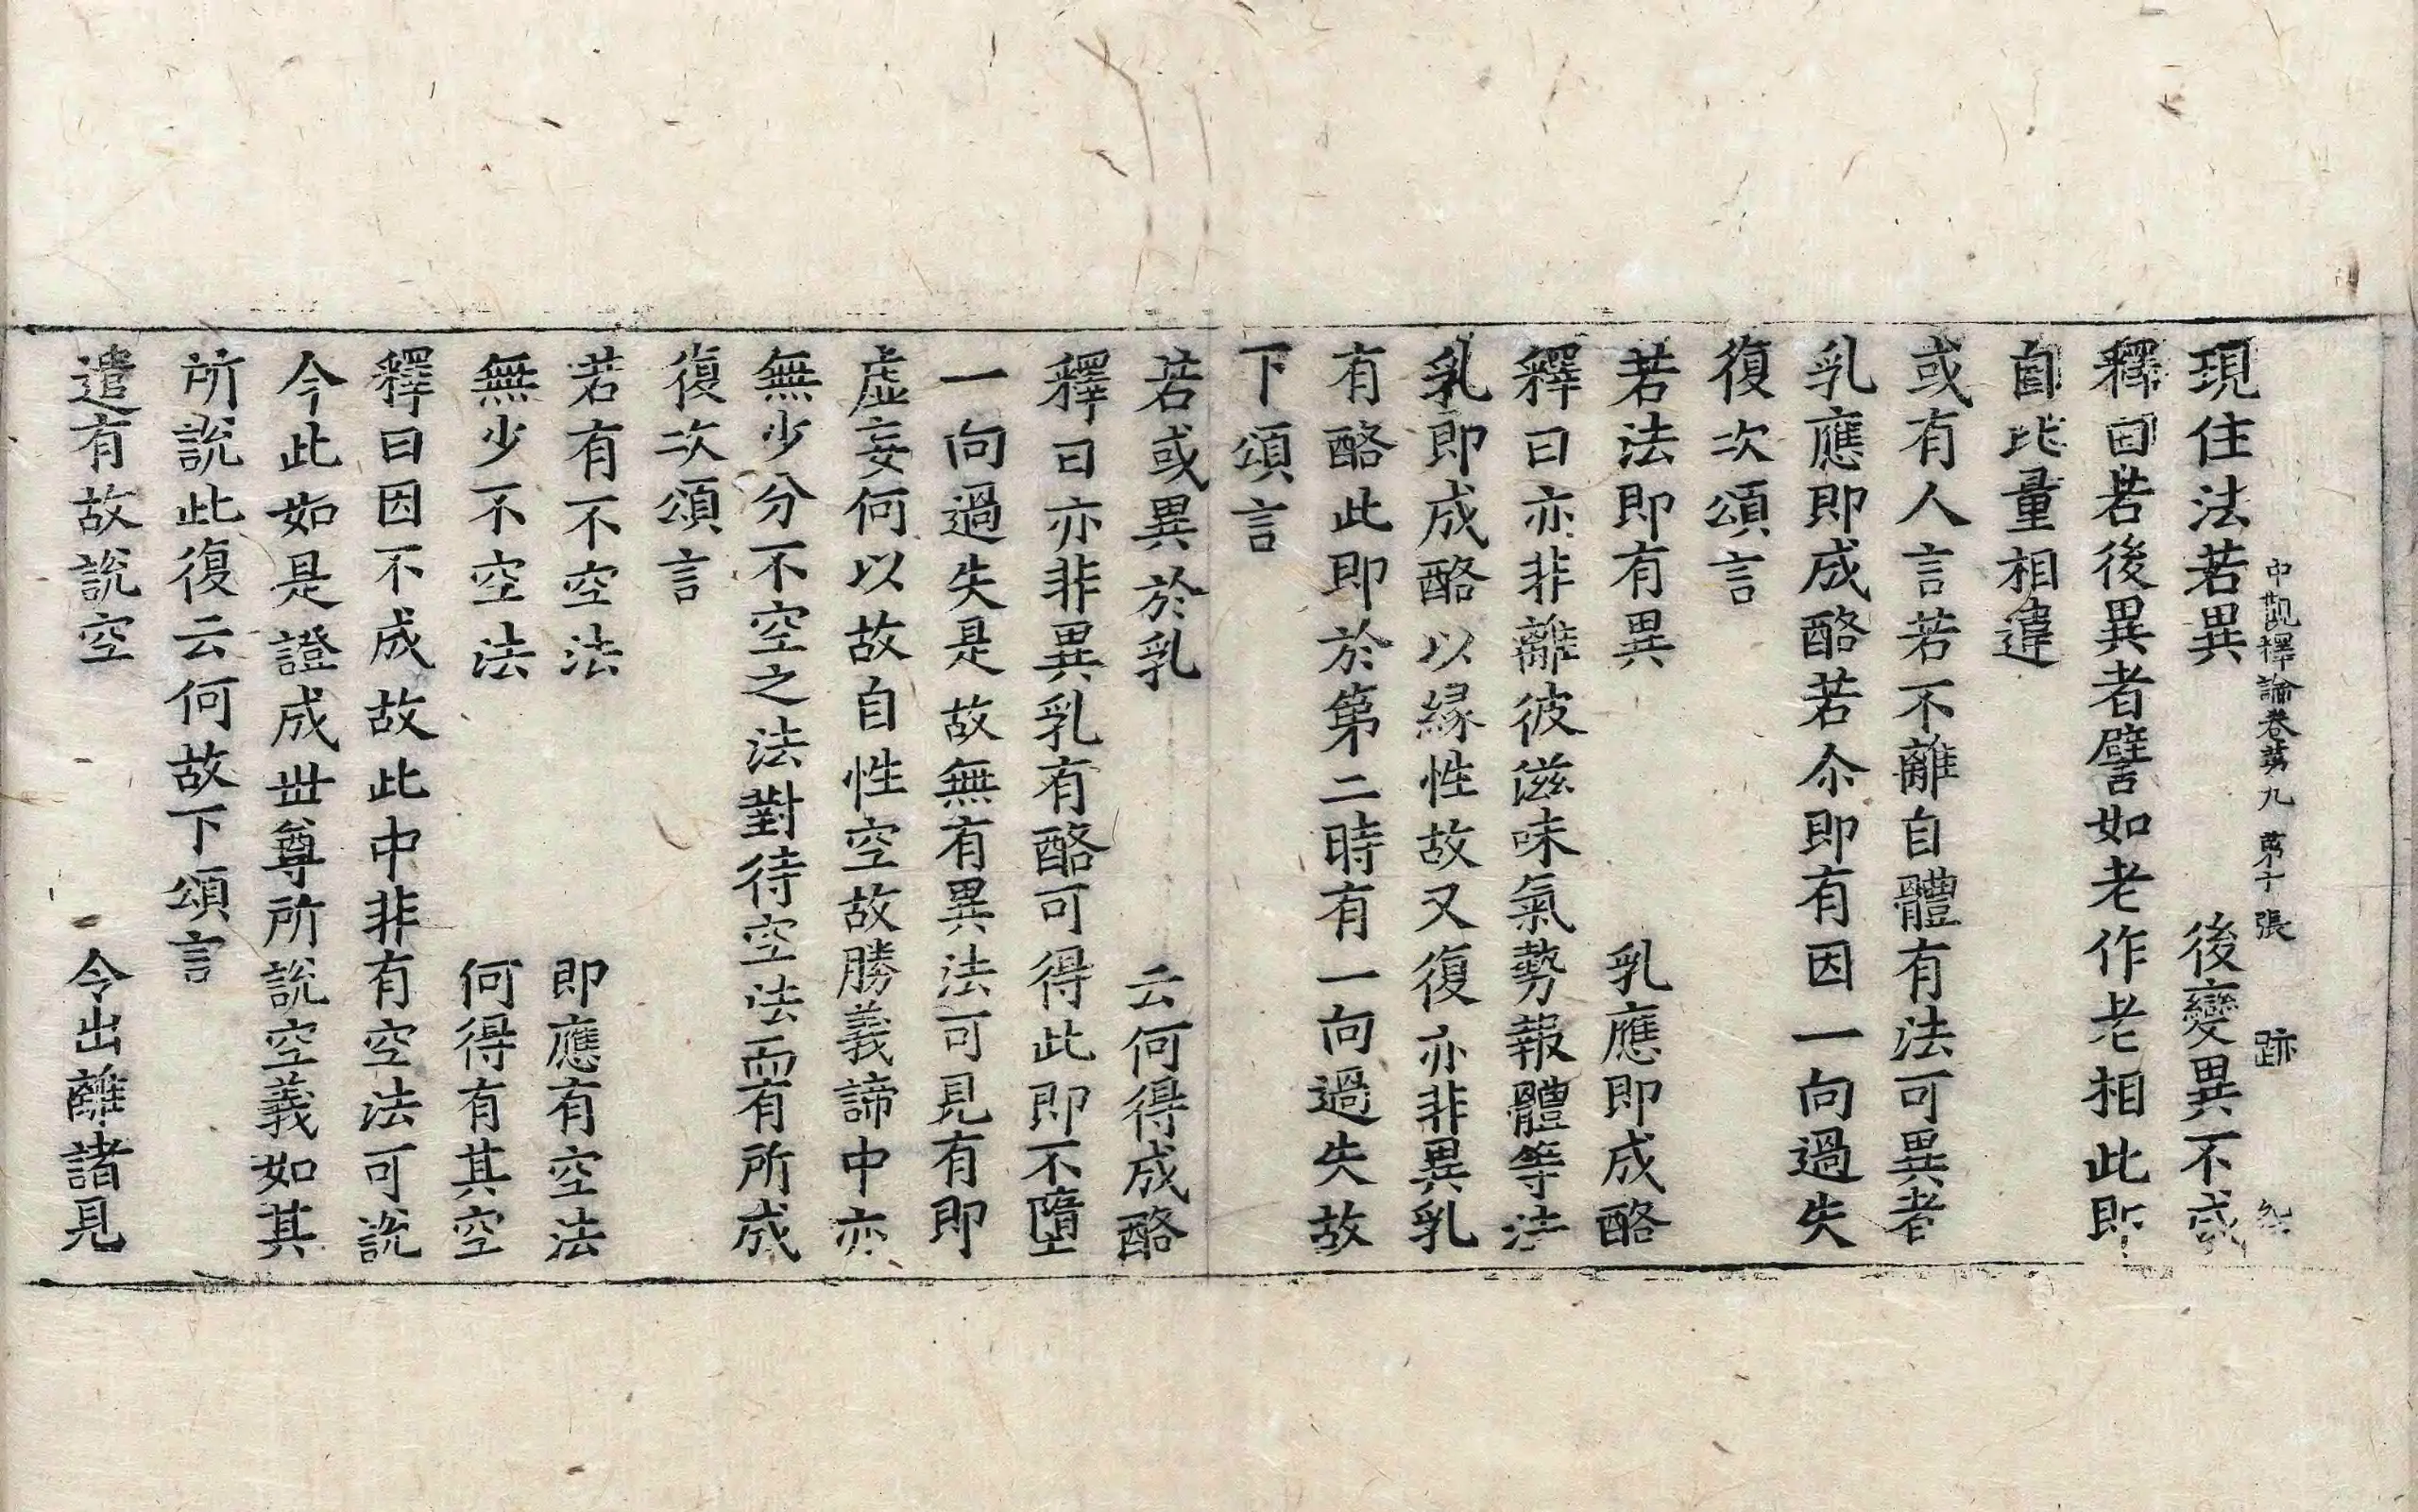 中觀釋論卷第九 第十張 跡
現住法若異 後變異不成
釋曰若後異者譬如老作老相此即
自比量相違
或有人言若不離自體有法可異者
乳應即成酪若尒即有因一向過失
復次頌言
若法即有異 乳應即成酪
釋曰亦非離彼滋味氣勢報體等法
乳即成酪以緣性故又復亦非異乳
有酪此即於第二時有一向過失故
下頌言
若或異於乳 云何得成酪
釋曰亦非異乳有酪可得此即不墮
一向過失是故無有異法可見有即
虛妄何以故自性空故勝義諦中亦
無少分不空之法對待空法而有所成
復次頌言
若有不空法 即應有空法
無少不空法 何得有其空
釋曰因不成故此中非有空法可說
今此如是證成世尊所說空義如其
所說此復云何故下頌言
遣有故說空 令出離諸見